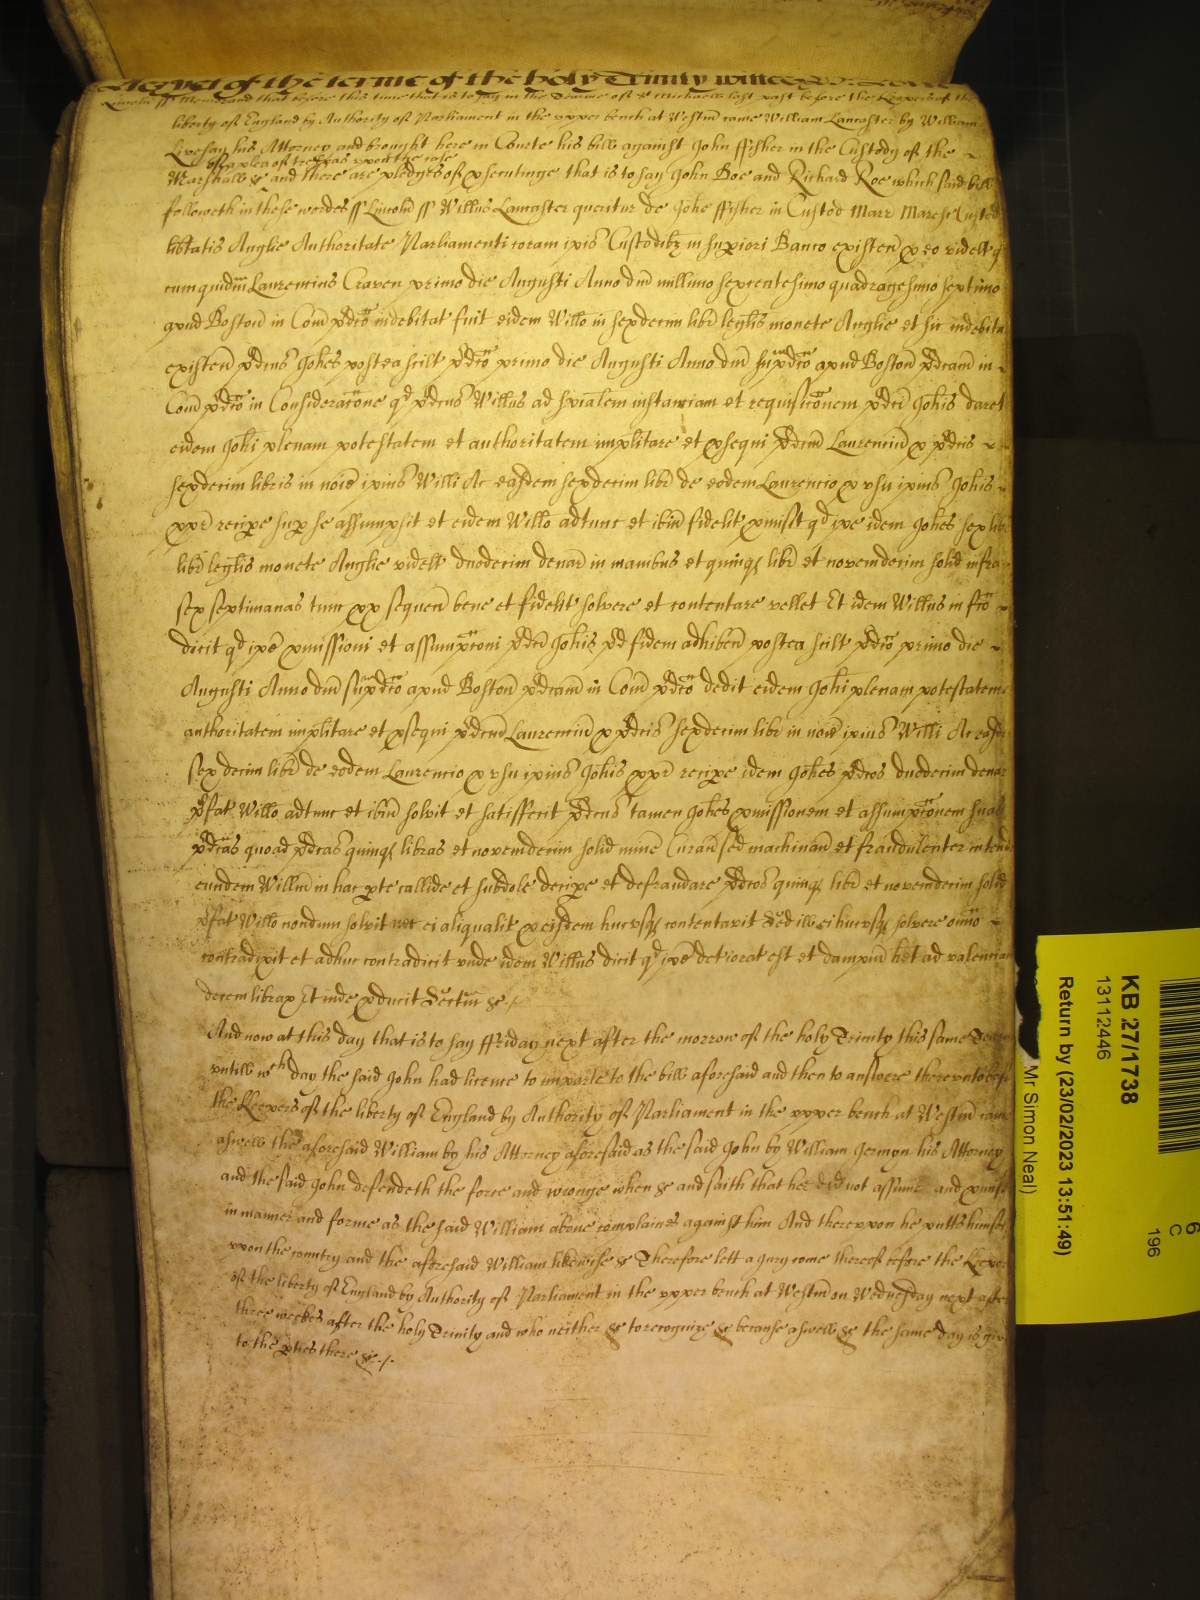 of the terme of the holy Trinity
Lincoln ss Memorand that before this time that is to say in the Terme of St Michaell last past before the Keepers of the
liberty of England by Authority of Parliament in the upper bench at Westm̄ came William Lancaster by William
Livesay his Attorney and brought here in Courte his bill against John ffisher in the Custody of the
of a plea of trespas upon the case
Marshall &c and there are pledges of prsecutinge that is to say John Doe and Richard Roe which said bill
followeth in these wordes ss Lincoln̄ ss Willus Lancaster queritur de Johe ffisher in Custod Marr Maresc Custod
lib̄tatis Anglie Authoritate Parliamenti coram ip̄is Custodibz in sup̱iori Banco existen̄ p̱ eo videlt qd
cum quidm̄ Laurencius Craven primo die Augusti Anno dn̄i millimo sexcentesimo quadragesimo septimo
apud Boston̄ in Com̄ p̄dc̄o indebitat fuit eidem Willo in sexdecim libr̄ leglis monete Anglie et sic indebitat
existen̄ p̄dcus Johes postea scilt p̄dc̄o primo die Augusti Anno dn̄i sup̄dc̄o apud Boston̄ p̄dcam̄ in
Com̄ p̄dc̄o in Consideracōne qd p̄dcus Willus ad sp̄ialem instanciam et requisicōnem p̄dci Johis daret
eidem Johi plenam potestatem et authoritatem implitare et p̱sequi p̄dcm̄ Laurenciu̅ p̱ p̄dcis
sexdecim libris in noi̅e ip̄ius Willi Ac easdem sexdecim libr̄ de eodem Laurencio p̱ usu ip̄ius Johis
pp̱r̄ recipe sup̱ se assumpsit et eidem Willo adtunc et ib̄m fidelit p̱misit qd ip̄e idem Johes sex libr̄
libr̄ leglis monete Anglie videlt duodecim denar̄ in manibus et quinq libr̄ et novemdecim solid infra
sex septimanas tunc px̱ sequen̄ bene et fidelit solvere et contentare vellet Et idem Willus in fc̄o
dicit qd ip̄e p̱missioni et assumpc̄oni p̄dci Johis p̄d fidem adhiben̄ postea scilt p̄dc̄o primo die
Augusti Anno dn̄i sup̄dc̄o apud Boston̄ p̄dcam̄ in Com̄ p̄dc̄o dedit eidem Johi plenam potestatem et
authoritatem implitare et p̱sequi p̄dcm̄ Laurenciu̅ p̱ p̄dcis sexdecim libr̄ in noi̅e ip̄ius Willi Ac easdem
sexdecim libr̄ de eodem Laurencio p̱ usu ip̄ius Johis pp̱r̄ recipe idem Johes p̄dcos duodecim denar
p̄fat Willo adtunc et ib̄m solvit et satisfecit p̄dcus tamen Johes p̱missionem et assumpc̄onem suas
p̄dcas quoad p̄dcas quinq libras et novemdecim solid minē Curan̄ sed machinan̄ et fraudulenter intend
eundem Willm̄ in hac p̱te callide et subdole decipe et defraudare p̄dcos quinq libr̄ et novemdecim solid
p̄fat Willo nondum solvit nec ei aliqualit p̱ eisdem hucusq contentavit Sed ill ei hucusq solvere om̄ino
contradixit et adhuc contradicit unde idem Willus dicit qd ip̄e deteriorat est et dampnu̅ het ad valenciam
decem librar Et inde p̱ducit Sectam &c
And now at this day that is to say ffriday next after the morrow of the holy Trinity this same Terme
untill wch day the said John had licence to imparle to the bill aforesaid and then to answere thereunto before
the Keepers of the liberty of England by Authority of Parliament in the upper bench at Westm̄ came
aswell the aforesaid William by his Attorney aforesaid as the said John by William Jermyn his Attorney
and the said John defendeth the force and wronge when &c and saith that hee did not assume and p̱mise
in manner and forme as the said William above complaines against him And thereupon he putts himselfe
upon the country and the aforesaid William likewise &c Therefore lett a Jury come thereof before the Keepers
of the liberty of England by Authority of Parliament in the upper bench at Westm̄ on Wednesday next after
three weekes after the holy Trinity and who neither &c to recognize &c because aswell &c the same day is given
to the p̱ties there &c
KB 27/1738
13112446
Return by (23/02/2023 13:51:49)
Mr Simon Neal)
6
C
196